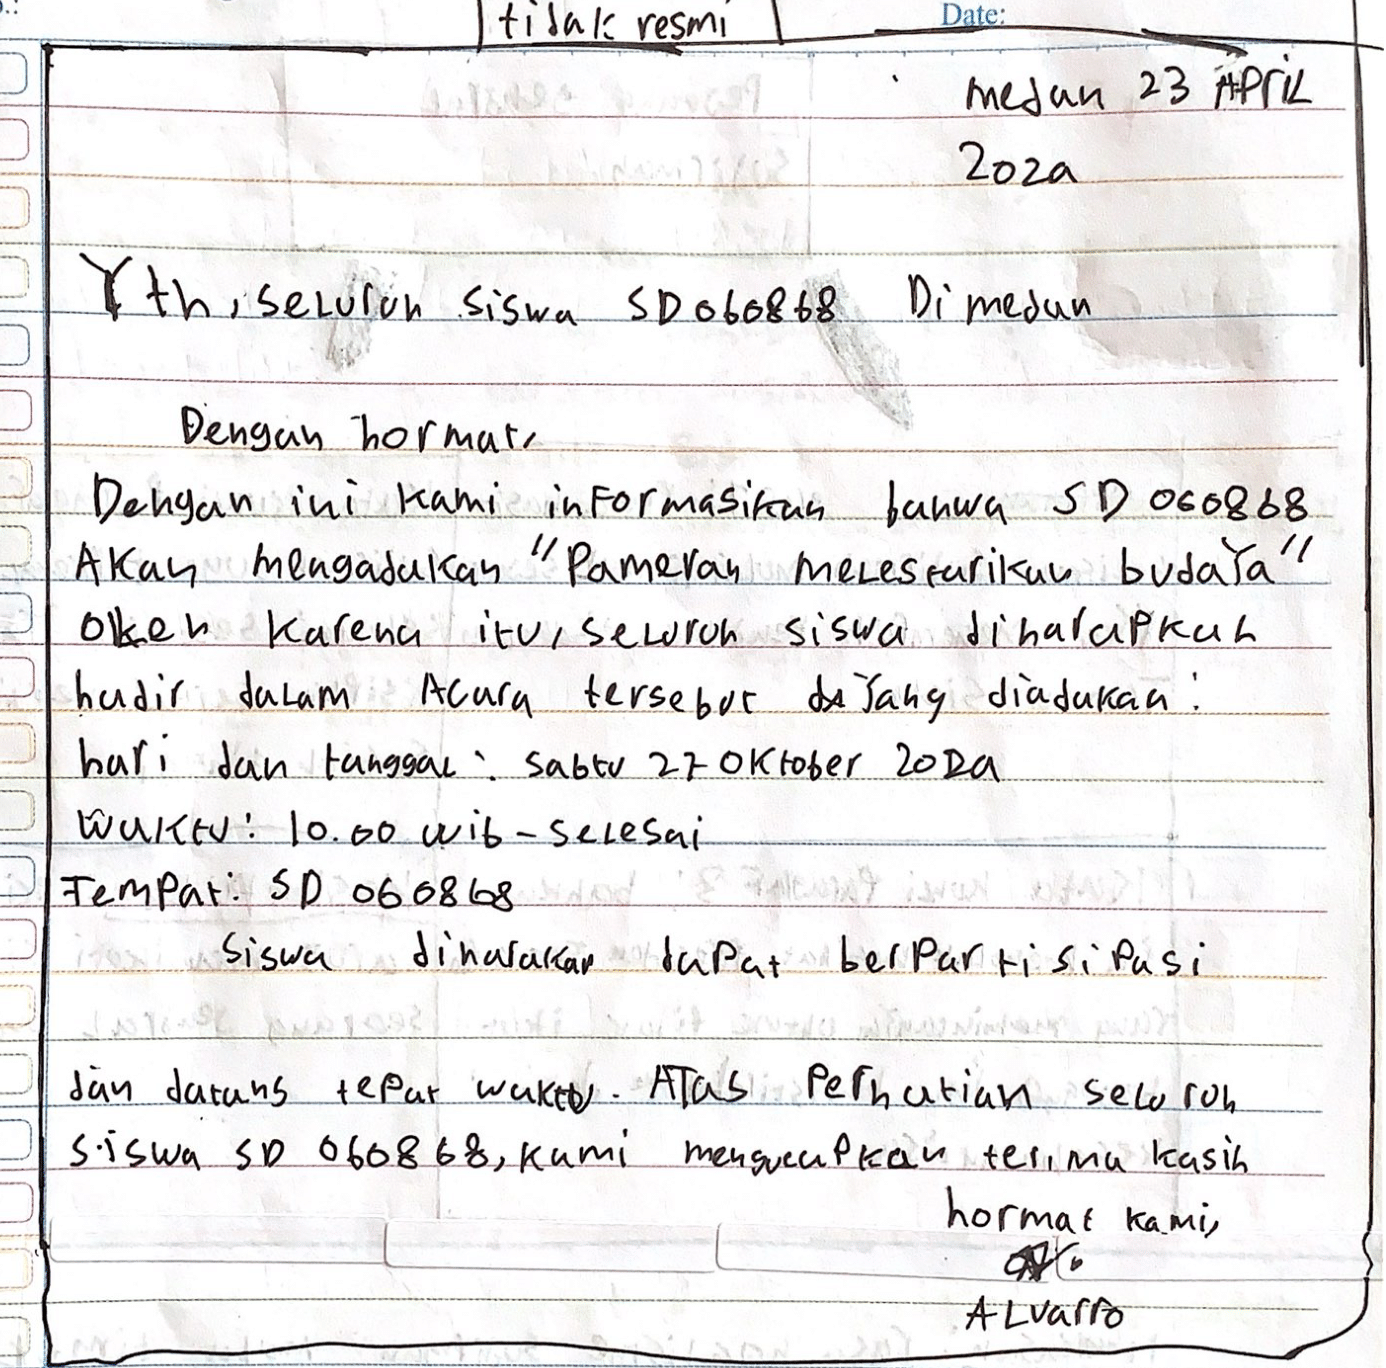 tidak resmi
Date:
medan 23 APriL
202a
Yth, seLuruh siswa SD 060868 Di medan
Dengan hormat,
Dengan ini kami inFormasikan bahwa SD 060868
AKan mengadakan "Pameran meLestarikan budaYa"
oleh karena itu, seLuruh siswa diharaPkan
hadir daLam Acara tersebut Yang diadakan:
hari dan tanggaL: sabtu 27 OKtober 202a
waktu: 10.00 wib - seLesai
TemPat: SD 060868
siswa diharakan daPat berPartisiPasi
dan datang tepat waktu. ATas Perhatian seluruh
siswa SD 060868, kami mengucaPkan terima kasih
hormat kami,
ALvarro